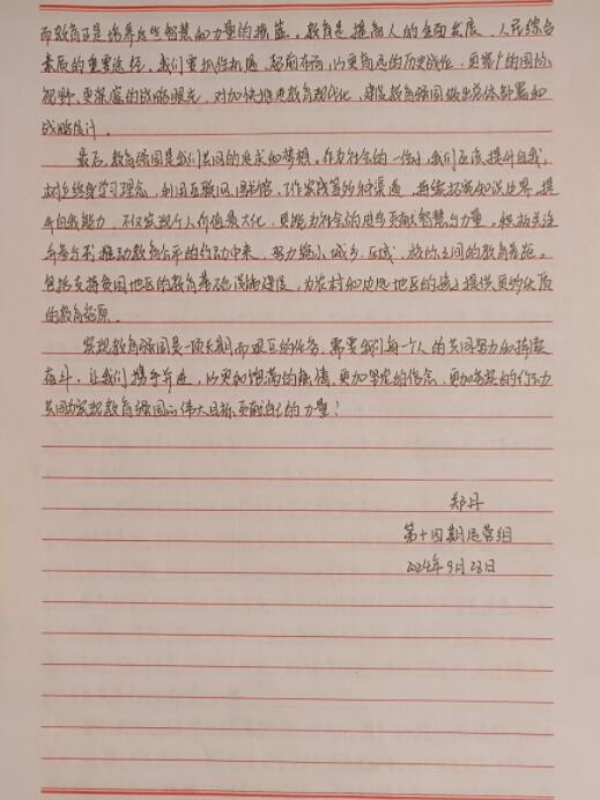 而教育正是培养这些智慧和力量的摇篮。教育是提高人的全面发展、人民综合
素质的重要途径，我们要抓住机遇，超前布局，以更高远的历史战位、更宽广的国际
视野、更深邃的战略眼光，对加快推进教育现代化、建设教育强国做出总体部署和
战略设计。
最后，教育强国是我们共同的追求和梦想。作为社会的一份子，我们应该提升自我，
树立终身学习理念，利用互联网、图书馆、工作实践等多种渠道，持续拓宽知识边界，提
升自我能力，不仅实现个人价值最大化，更能为社会的进步贡献智慧与力量。积极关注
并参与到推动教育公平的行动中来，努力缩小城乡、区域、校际之间的教育差距。
包括支持贫困地区的教育基础设施建设，为农村和边远地区的孩子提供更多优质
的教育资源。
实现教育强国是一项长期而艰巨的任务，需要我们每一个人的共同努力和持续
奋斗。让我们携手并进，以更加饱满的热情、更加坚定的信念、更加务实的行动力
共同为实现教育强国的伟大目标贡献自己的力量！
郑丹
第十四期运营组
2024年9月28日